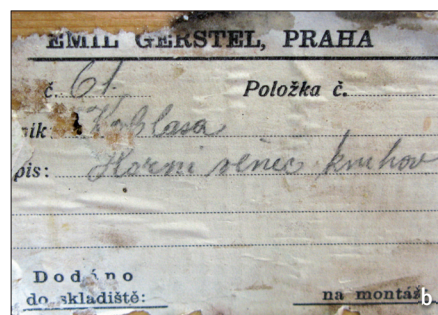 EMIL GERSTEL, PRAHA
č. 61. Položka č.
ník: Koblasa
pis: Horní věnec knihov
Dodáno
do skladiště: na montáž
b